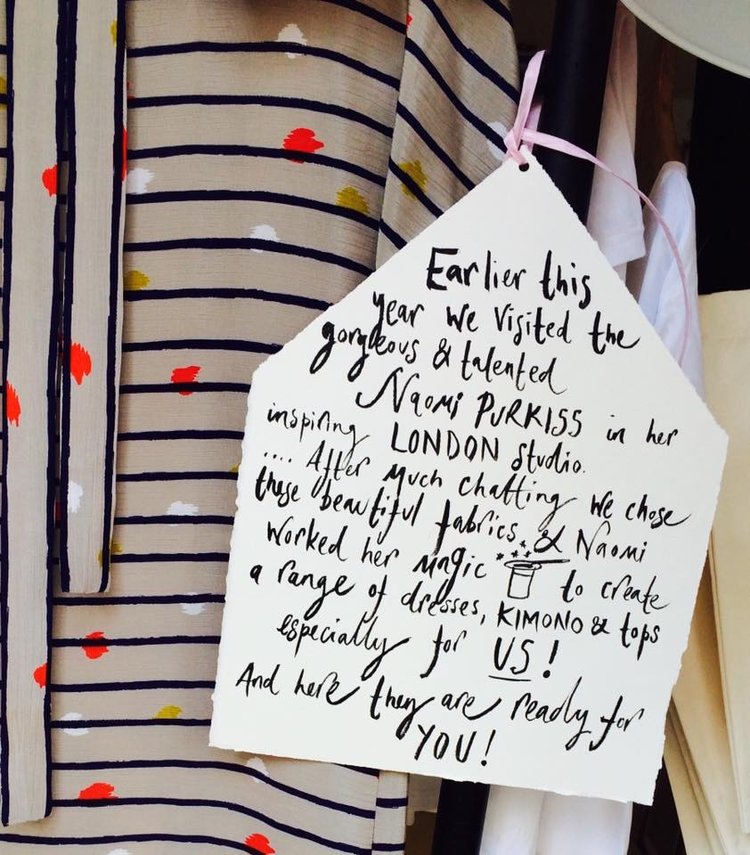 Earlier this
year we visited the
gorgeous & talented
Naomi PURKISS in her
inspiring LONDON studio.
.... After much chatting we chose
these beautiful fabrics, & Naomi
worked her magic to create
a range of dresses, KIMONO & tops
especially for US!
And here they are ready for
YOU!